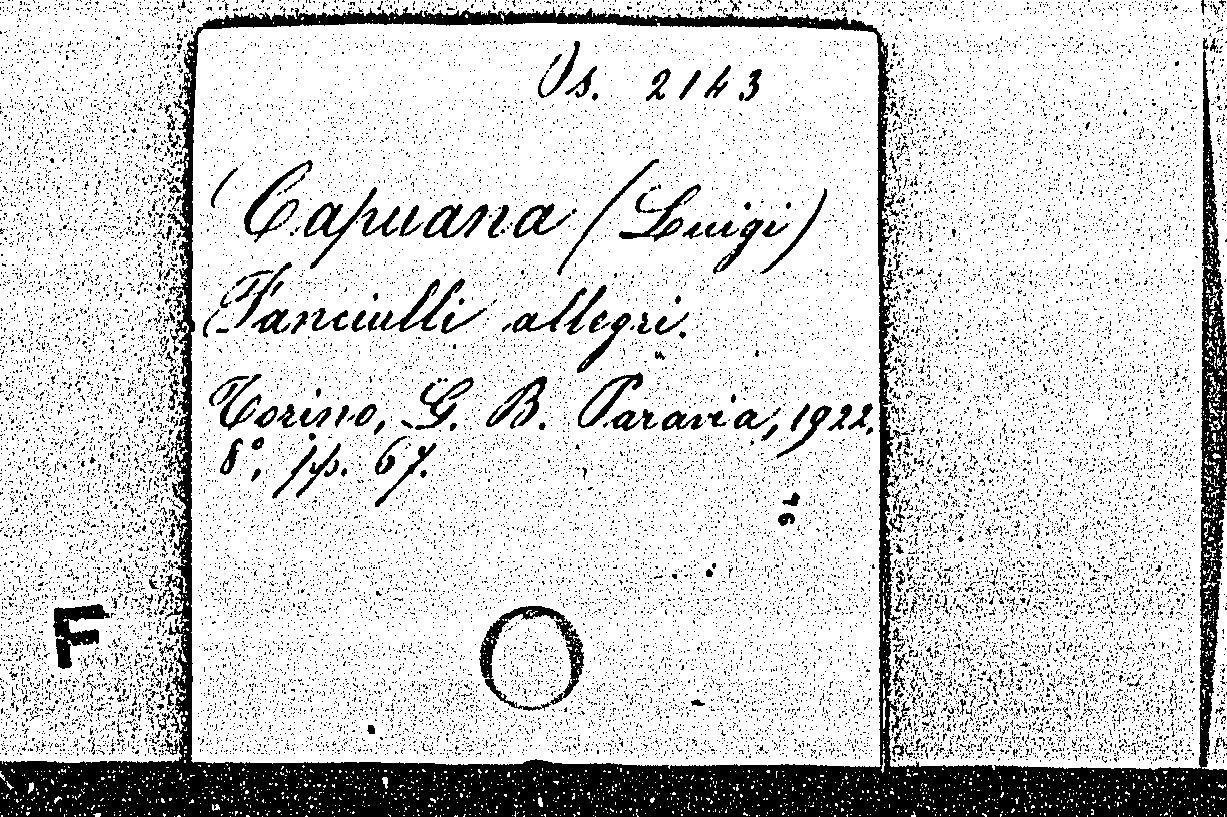 Vs. 2143
Capuana (Luigi)
Fanciulli allegri.
Torino, G. B. Paravia, 1922.
8°, pp. 67.
F